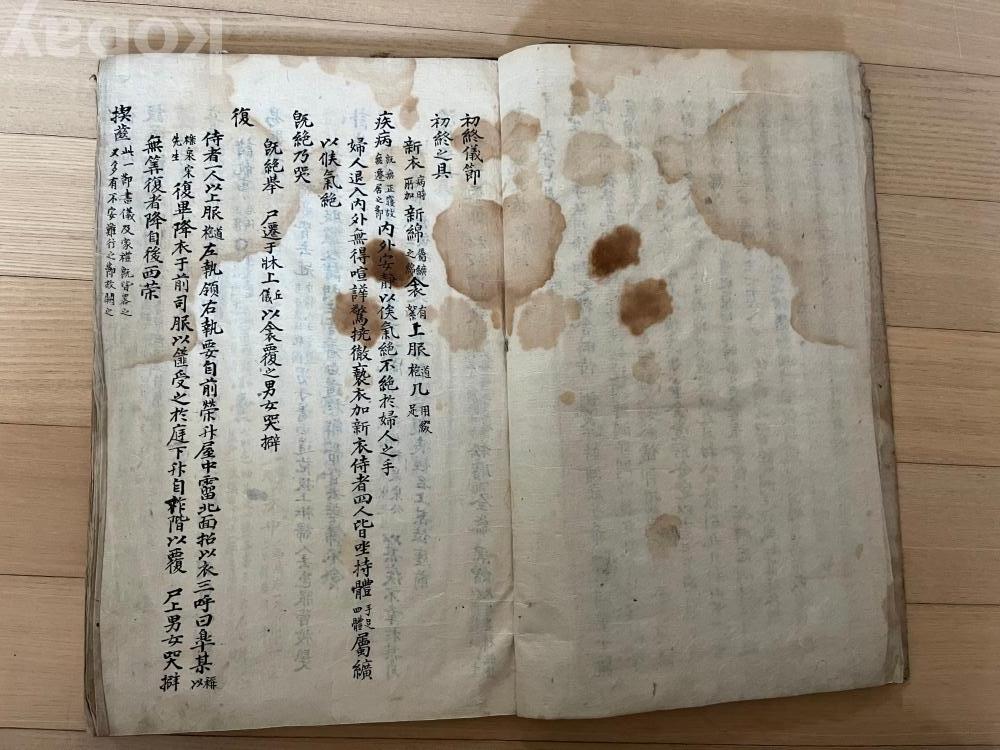 初終儀節
初終之具
新衣 病時所加 新綿 卽纊之綿 衾 有絮 上服 道袍 几 用綴足
疾病 內外安靜以俟氣絶不絶於婦人之手
婦人退入內外無得喧譁驚撓徹褻衣加新衣侍者四人皆坐持體 手足四體 屬纊
以俟氣絶
旣絶乃哭
旣絶擧 尸遷于牀上 丘儀 以衾覆之男女哭擗
復
侍者一人以上服 道袍 左執領右執要自前榮升屋中霤北面招以衣三呼曰臯某 以稱
櫟泉宋先生 復畢降衣于前司服以篚受之於庭下升自阼階以覆 尸上男女哭擗
無筭復者降自後西榮
楔齒 此一節書儀及家禮旣皆畧之又多有不安難行之節故闕之
Kobay